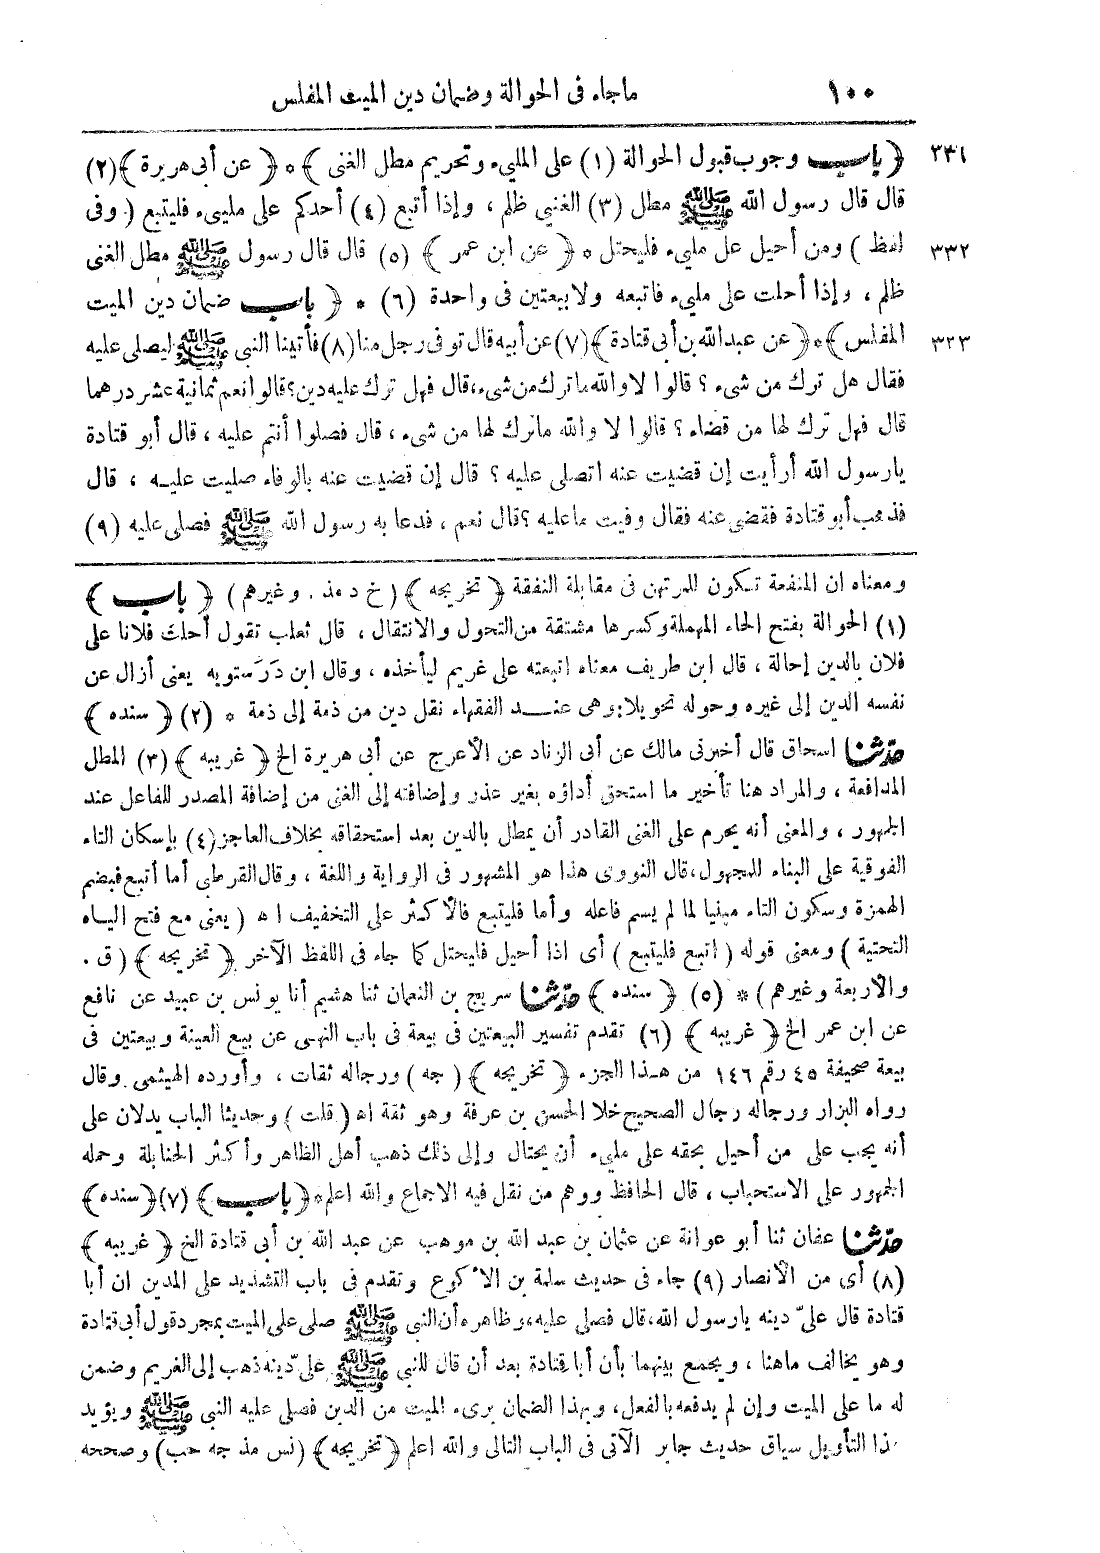 ١٠٠ ماجاء فى الحوالة وضمان دين الميت المفلس
٣٣١ ﴿ باب وجوب قبول الحوالة (١) على الملىء وتحريم مطل الغنى ﴾ * ﴿ عن أبى هريرة ﴾(٢)
قال قال رسول الله ﷺ مطل (٣) الغنى ظلم ، وإذا أتبع (٤) أحدكم على ملىء فليتبع ( وفى
٣٣٢ لفظ ) ومن أحيل على ملىء فليحتل * ﴿ عن ابن عمر ﴾ (٥) قال قال رسول ﷺ مطل الغنى
ظلم ، وإذا أحلت على ملىء فاتبعه ولا بيعتين فى واحدة (٦) * ﴿ باب ضمان دين الميت
٣٢٣ المفلس ﴾*﴿ عن عبدالله بن أبى قتادة ﴾(٧) عن أبيه قال توفى رجل منا (٨) فأتينا النبى ﷺ ليصلى عليه
فقال هل ترك من شىء ؟ قالوا لا والله ماترك من شىء، قال فهل ترك عليه دين؟ قالوا نعم ثمانية عشر درهما
قال فهل ترك لها من قضاء ؟ قالوا لا والله ماترك لها من شىء ، قال فصلوا أنتم عليه ، قال أبو قتادة
يارسول الله أرأيت إن قضيت عنه اتصلى عليه ؟ قال إن قضيت عنه بالوفاء صليت عليه ، قال
فذهب أبو قتادة فقضى عنه فقال وفيت ماعليه ؟ قال نعم ، فدعا به رسول الله ﷺ فصلى عليه (٩)
ومعناه ان المنفعة تكون للمرتهن فى مقابلة النفقة ﴿ تخريجه ﴾ ( خ د مذ . وغيرهم ) ﴿ باب ﴾
(١) الحوالة بفتح الحاء المهملة وكسرها مشتقة من التحول والانتقال ، قال ثعلب تقول أحلت فلانا على
فلان بالدين إحالة ، قال ابن طريف معناه اتبعته على غريم ليأخذه ، وقال ابن دَرَستويه يعنى أزال عن
نفسه الدين إلى غيره وحوله تحويلا: وهى عند الفقهاء نقل دين من ذمة إلى ذمة * (٢) ﴿ سنده ﴾
حدّثنا اسحاق قال أخبرنى مالك عن أبى الزناد عن الأعرج عن أبى هريرة الخ ﴿ غريبه ﴾ (٣) المطل
المدافعة ، والمراد هنا تأخير ما استحق أداؤه بغير عذر وإضافته إلى الغنى من إضافة المصدر للفاعل عند
الجمهور ، والمعنى أنه يحرم على الغنى القادر أن يمطل بالدين بعد استحقاقه بخلاف العاجز (٤) بإسكان التاء
الفوقية على البناء للمجهول، قال النووى هذا هو المشهور فى الرواية واللغة ، وقال القرطبى أما أتبع فبضم
الهمزة وسكون التاء مبنيا لما لم يسم فاعله وأما فليتبع فالأكثر على التخفيف ا ه ( يعنى مع فتح الياء
التحتية ) ومعنى قوله ( اتبع فليتبع ) أى اذا أحيل فليحتل كما جاء فى اللفظ الآخر ﴿ تخريجه ﴾ ( ق .
والأربعة وغيرهم ) * (٥) ﴿ سنده ﴾ حدّثنا سريج بن النعمان ثنا هشيم أنا يونس بن عبيد عن نافع
عن ابن عمر الخ ﴿ غريبه ﴾ (٦) تقدم تفسير البيعتين فى بيعة فى باب النهى عن بيع العينة وبيعتين فى
بيعة صحيفة ٤٥ رقم ١٤٦ من هذا الجزء ﴿ تخريجه ﴾ ( جه ) ورجاله ثقات ، وأورده الهيثمى وقال
رواه البزار ورجاله رجال الصحيح خلا الحسن بن عرفة وهو ثقة اه ( قلت ) وحديثا الباب يدلان على
أنه يجب على من أحيل بحقه على ملىء أن يحتال وإلى ذلك ذهب أهل الظاهر وأكثر الحنابلة وحمله
الجمهور على الاستحباب ، قال الحافظ ووهم من نقل فيه الاجماع والله اعلم *﴿ باب ﴾ (٧) ﴿ سنده ﴾
حدّثنا عفان ثنا أبو عوانة عن عثمان بن عبد الله بن موهب عن عبد الله بن أبى قتادة الخ ﴿ غريبه ﴾
(٨) أى من الأنصار (٩) جاء فى حديث سلمة بن الاكوع وتقدم فى باب التشديد على المدين ان أبا
قتادة قال علىّ دينه يارسول الله، قال فصلى عليه، وظاهره أن النبى ﷺ صلى على الميت بمجرد قول أبى قتادة
وهو يخالف ماهنا ، ويجمع بينهما بأن أبا قتادة بعد أن قال للنبى ﷺ علىّ دينه ذهب إلى الغريم وضمن
له ما على الميت وإن لم يدفعه بالفعل، وبهذا الضمان برىء الميت من الدين فصلى عليه النبى ﷺ ويؤيد
هذا التأويل سياق حديث جابر الآتى فى الباب التالى والله اعلم ﴿ تخريجه ﴾ ( نس مذ جه حب ) وصححه